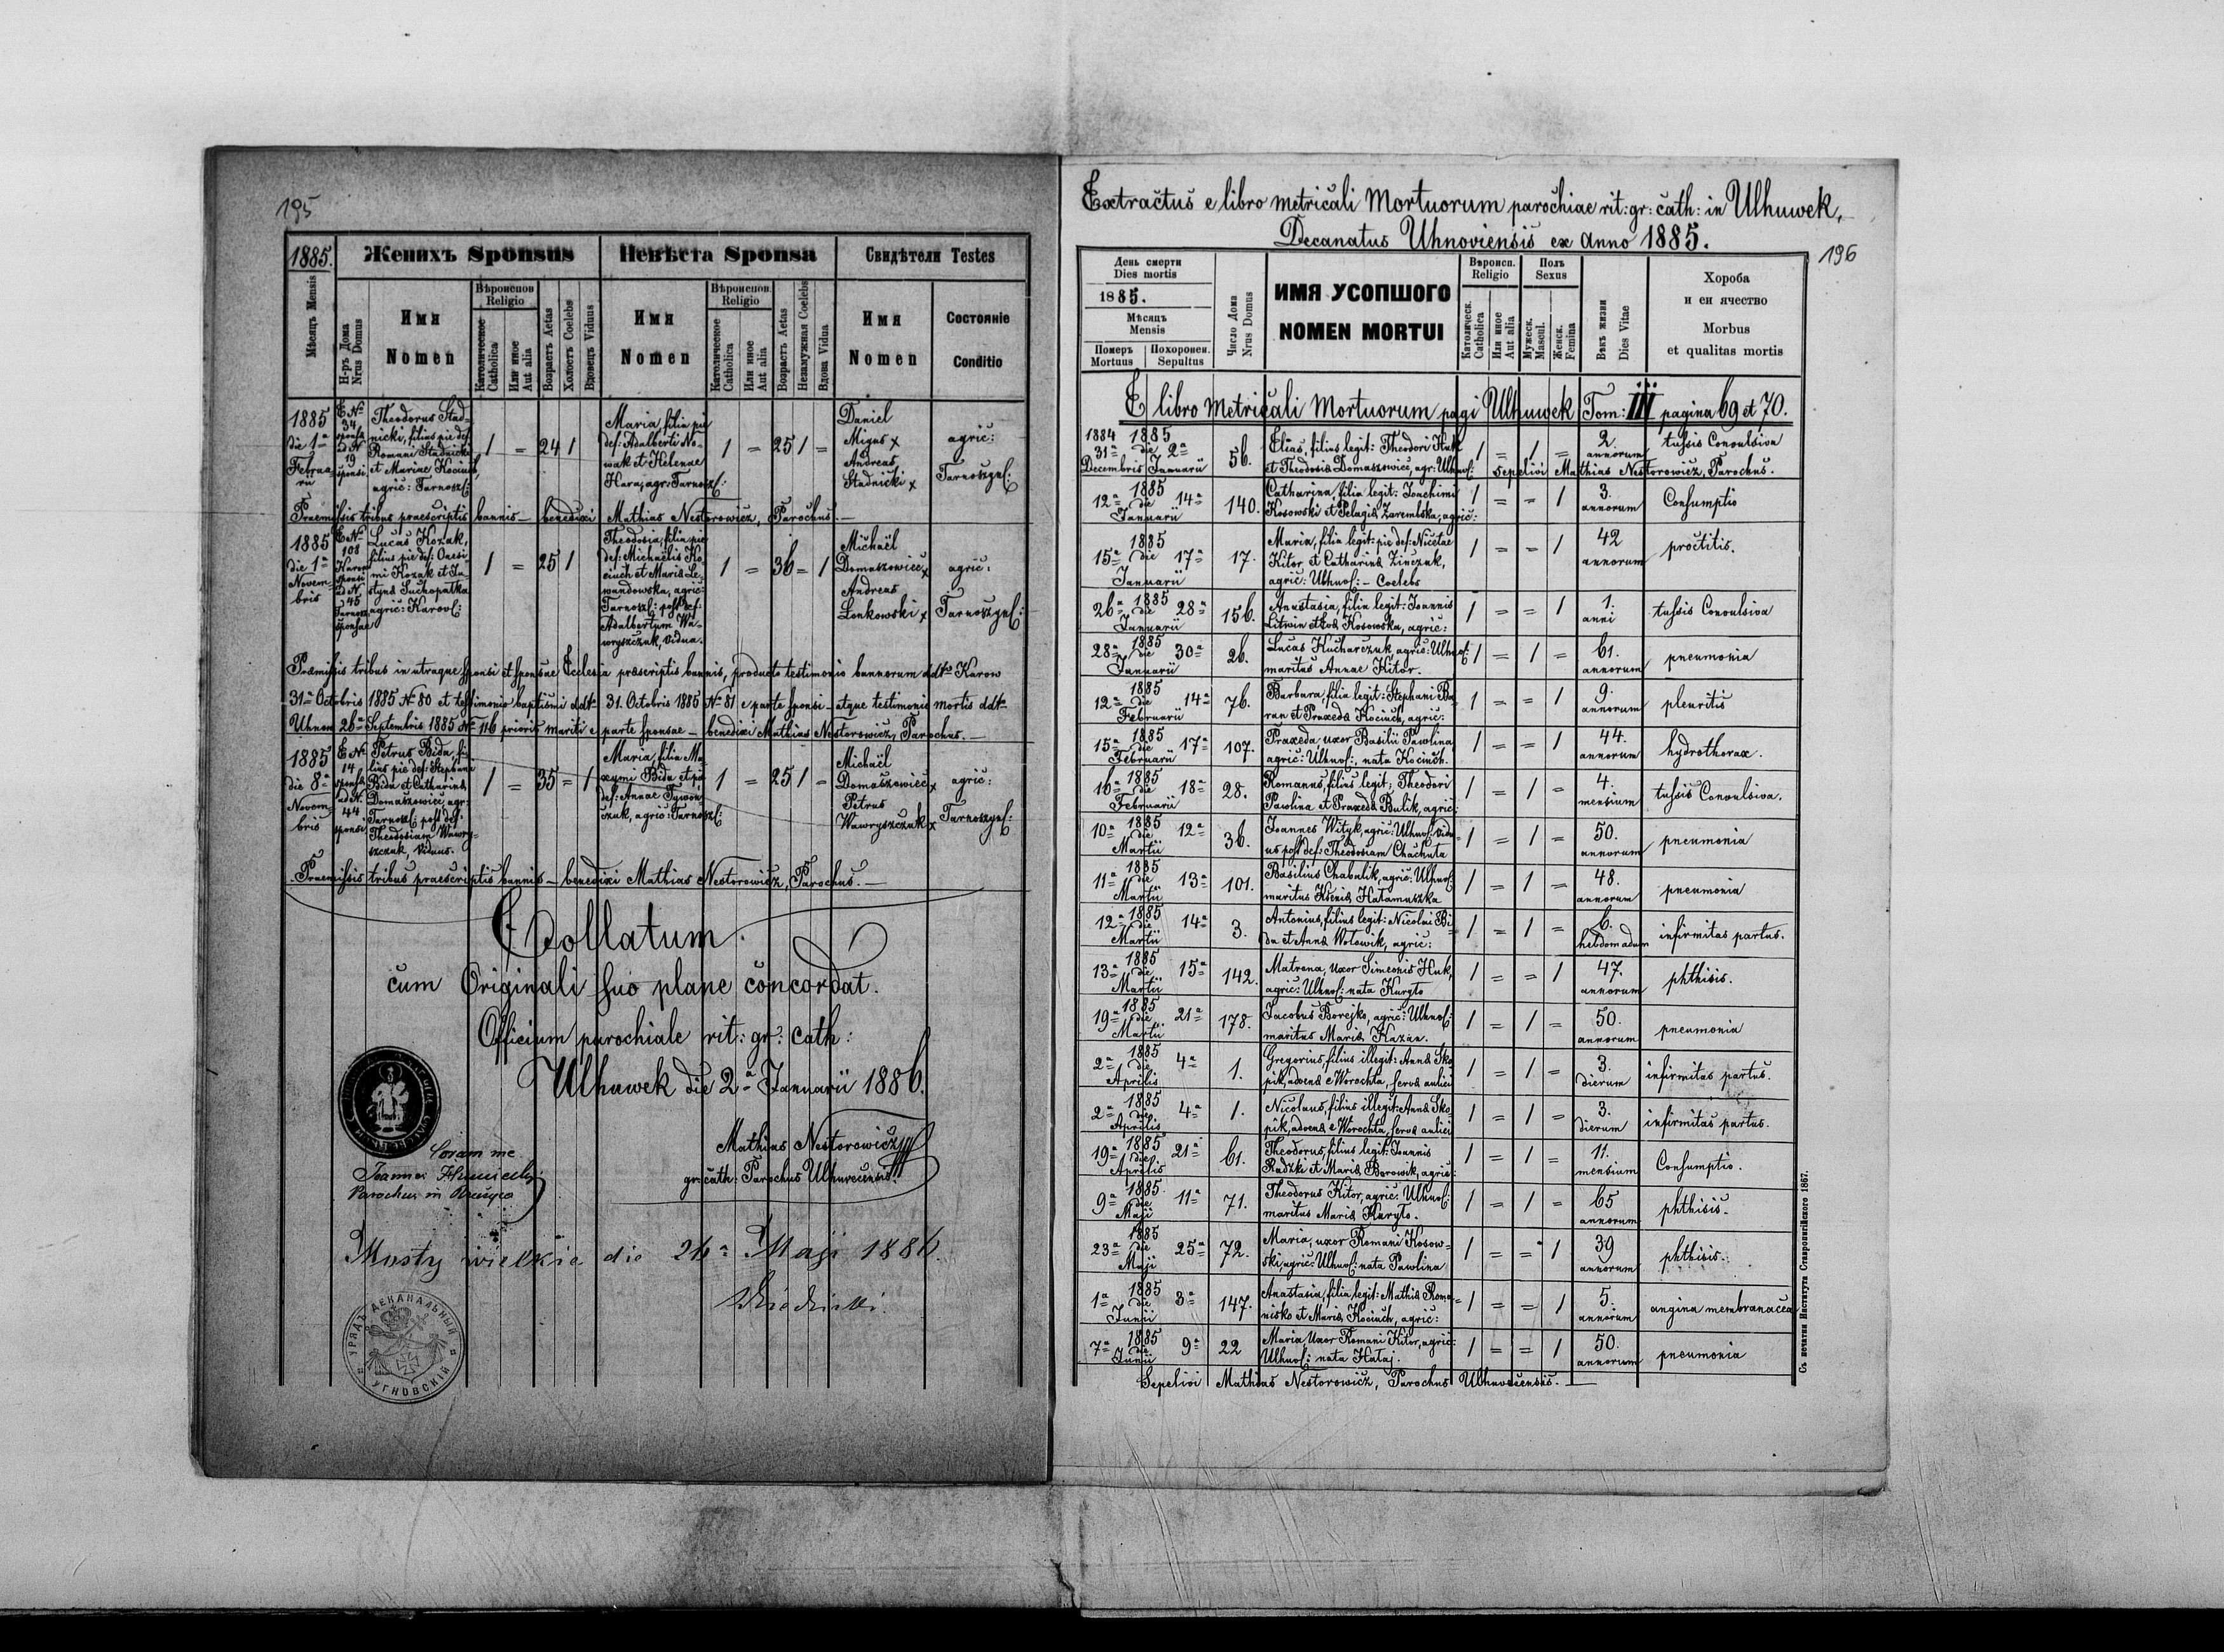 195
1885.
Женихъ Sponsus
Невѣста Sponsa
Свидѣтели Testes
Мѣсяцъ Mensis
Н-ръ Дома
Nrus Domus
Имя
Nomen
Вѣроиспов.
Religio
Католическое
Catholica
Или иное
Aut alia
Возрастъ Aetas
Холостъ Coelebs
Вдовецъ Viduus
Имя
Nomen
Вѣроиспов.
Religio
Католическое
Catholica
Или иное
Aut alia
Возрастъ Aetas
Незамужная Coelebs
Вдова Vidua
Имя
Nomen
Состояніе
Conditio
1885
die 1ª
Februa-
rii
E Nº
34
sponsae
ad N.
19
sponsi
Theodorus Stad-
nicki, filius pie def:
Romani Stadnicki
et Mariae Kociuch,
agric: Tarnosz:
1 = 24 1
Maria, filia pie
def: Adalberti No-
wak et Helenae
Hara, agr: Tarnosz:
1 = 25 1 =
Daniel
Migus x
Andreas
Stadnicki x
agric:
Tarnoszyn:
Praemissis tribus praescriptis bannis – benedixi Mathias Nestorowicz, Parochus. –
1885
die 1ª
Novem-
bris
E Nº
108
Karow
sponsi
ad N.
45
Tarnosz
sponsae
Lucas Kozak,
filius pie def: Onesi-
mi Kozak et Ju-
styna Suchopatka
agric: Karov:
1 = 25 1
Theodosia, filia pie
def: Michaëlis Ko-
ciuch et Maria Le-
wandowska, agric:
Tarnosz: post def:
Adalbertum Wa-
wryszczuk, vidua.
1 = 36 = 1
Michaël
Domaszowiec x
Andreas
Łonkowski x
agric:
Tarnoszyn:
Praemissis tribus in utraque sponsi et sponsae Ecclesia praescriptis bannis, producto testimonio bannorum ddtº Karow
31ª Octobris 1885 Nº 80 et testimonio baptismi ddtº 31. Octobris 1885 Nº 81 e parte sponsi – atque testimonio mortis ddtº
Uhnow 26ª Septembris 1885 Nº 116 prioris mariti e parte sponsae – benedixi Mathias Nestorowicz, Parochus. –
1885
die 8ª
Novem-
bris
E Nº
14
sponsae
ad N.
44
sponsi
Petrus Bida, fi-
lius pie def: Stephani
Bida et Catharina
Domaszowiec, agr:
Tarnosz: post def:
Theodosiam Wawry-
szczuk, viduus.
1 = 35 = 1
Maria, filia Ma-
xymi Bida et pie
def: Annae Tywon-
czuk, agric: Tarnosz:
1 = 25 1 =
Michaël
Domaszowiec x
Petrus
Wawryszczuk x
agric:
Tarnoszyn:
Praemissis tribus praescriptis bannis – benedixi Mathias Nestorowicz, Parochus. –
Collatum
cum Originali suo plane concordat.
Officium parochiale rit: gr: cath:
Ulhuwek die 2ª Januarii 1886.
Mathias Nestorowicz
gr: cath: Parochus Ulhuvecensis.
Coram me
Joannes
Parochus in
Mosty wielkie die 26ª Maji 1886.
УРЯДЪ ДЕКАНАЛЬНЫЙ УГНОВСКІЙ
Extractus e libro metricali Mortuorum parochiae rit: gr: cath: in Ulhuwek,
Decanatus Uhnoviensis ex anno 1885.
196
День смерти
Dies mortis
1885.
Мѣсяцъ
Mensis
Померъ
Mortuus
Похоронен.
Sepultus
Число Дома
Nrus Domus
ИМЯ УСОПШОГО
NOMEN MORTUI
Вѣроисп.
Religio
Католическ.
Catholica
Или иное
Aut alia
Полъ
Sexus
Мужеск.
Mascul.
Женск.
Femina
Вѣкъ жизни
Dies Vitae
Хороба
и еи ячество
Morbus
et qualitas mortis
E libro metricali Mortuorum pagi Ulhuwek Tom: III pagina 69 et 70.
1884 1885
31ª die 2ª
Decembris Januarii
56.
Elias, filius legit: Theodori Huk
et Theodosia Domaszowiec, agr: Ulhuv:
1 = 1 =
2.
annorum
tussis Convulsiva
Sepelivi Mathias Nestorowicz, Parochus.
1885
12ª die 14ª
Januarii
140.
Catharina, filia legit: Joachimi
Kosowski et Pelagia Zarembska, agric:
1 = = 1
3.
annorum
Consumptio
1885
15ª die 17ª
Januarii
17.
Maria, filia legit: pie def: Nicetae
Kitor et Catharina Zinczuk,
agric: Ulhuv: – Coelebs
1 = = 1
42
annorum
proctitis.
1885
26ª die 28ª
Januarii
156.
Anastasia, filia legit: Joannis
Litwin et Eva Kosowska, agric:
1 = = 1
1.
anni
tussis Convulsiva
1885
28ª die 30ª
Januarii
26.
Lucas Kucharczuk agric: Ulhuv:
maritus Annae Kitor.
1 = 1 =
61.
annorum
pneumonia
1885
12ª die 14ª
Februarii
76.
Barbara, filia legit: Stephani Ba-
ran et Praxeda Kociuch, agric:
1 = = 1
9.
annorum
pleuritis
1885
15ª die 17ª
Februarii
107.
Praxeda uxor Basilii Pawlina
agric: Ulhuv:, nata Kociuch.
1 = = 1
44.
annorum
hydrothorax.
1885
16ª die 18ª
Februarii
28.
Romanus, filius legit: Theodori
Pawlina et Praxeda Bulik, agric:
1 = 1 =
4.
mensium
tussis Convulsiva.
1885
10ª die 12ª
Martii
36.
Joannes Wityk, agric: Ulhuv: vidu-
us post def: Theodosiam Chachuta
1 = 1 =
50.
annorum
pneumonia
1885
11ª die 13ª
Martii
101.
Basilius Chabalik, agric: Ulhuv:
maritus Xenia Hałamuszka
1 = 1 =
48.
annorum
pneumonia
1885
12ª die 14ª
Martii
3.
Antonius, filius legit: Nicolai Bi-
da et Anna Wołowik, agric:
1 = 1 =
6.
hebdomadum
infirmitas partus.
1885
13ª die 15ª
Martii
142.
Matrona, uxor Simeonis Huk,
agric: Ulhuv: nata Kuryło
1 = = 1
47.
annorum
phthisis.
1885
19ª die 21ª
Martii
178.
Jacobus Borejko, agric: Ulhuv:
maritus Maria Kazan.
1 = 1 =
50.
annorum
pneumonia
1885
2ª die 4ª
Aprilis
1.
Gregorius, filius illegit: Anna Sko-
pik, advena e Worochta, serva aulici
1 = 1 =
3.
dierum
infirmitas partus.
1885
2ª die 4ª
Aprilis
1.
Nicolaus, filius illegit: Anna Sko-
pik, advena e Worochta, serva aulici
1 = 1 =
3.
dierum
infirmitas partus.
1885
19ª die 21ª
Aprilis
61.
Theodorus, filius legit: Joannis
Radzki et Maria Borowik, agric:
1 = 1 =
11.
mensium
Consumptio.
1885.
9ª die 11ª
Maji
71.
Theodorus Kitor, agric: Ulhuv:
maritus Maria Kuryło.
1 = 1 =
65
annorum
phthisis.
1885
23ª die 25ª
Maji
72.
Maria, uxor Romani Kosow-
ski, agric: Ulhuv: nata Pawlina
1 = = 1
39
annorum
phthisis.
1885
1ª die 3ª
Junii
147.
Anastasia, filia legit: Mathia Roma-
nisko et Maria Kociuch, agric:
1 = = 1
5.
annorum
angina membranacea
1885
7ª die 9ª
Junii
22
Maria, uxor Romani Kitor, agric:
Ulhuv: nata Hataj.
1 = = 1
50.
annorum
pneumonia
Sepelivi Mathias Nestorowicz, Parochus Ulhuvecensis. –
Съ печатни Института Ставропигійского 1867.